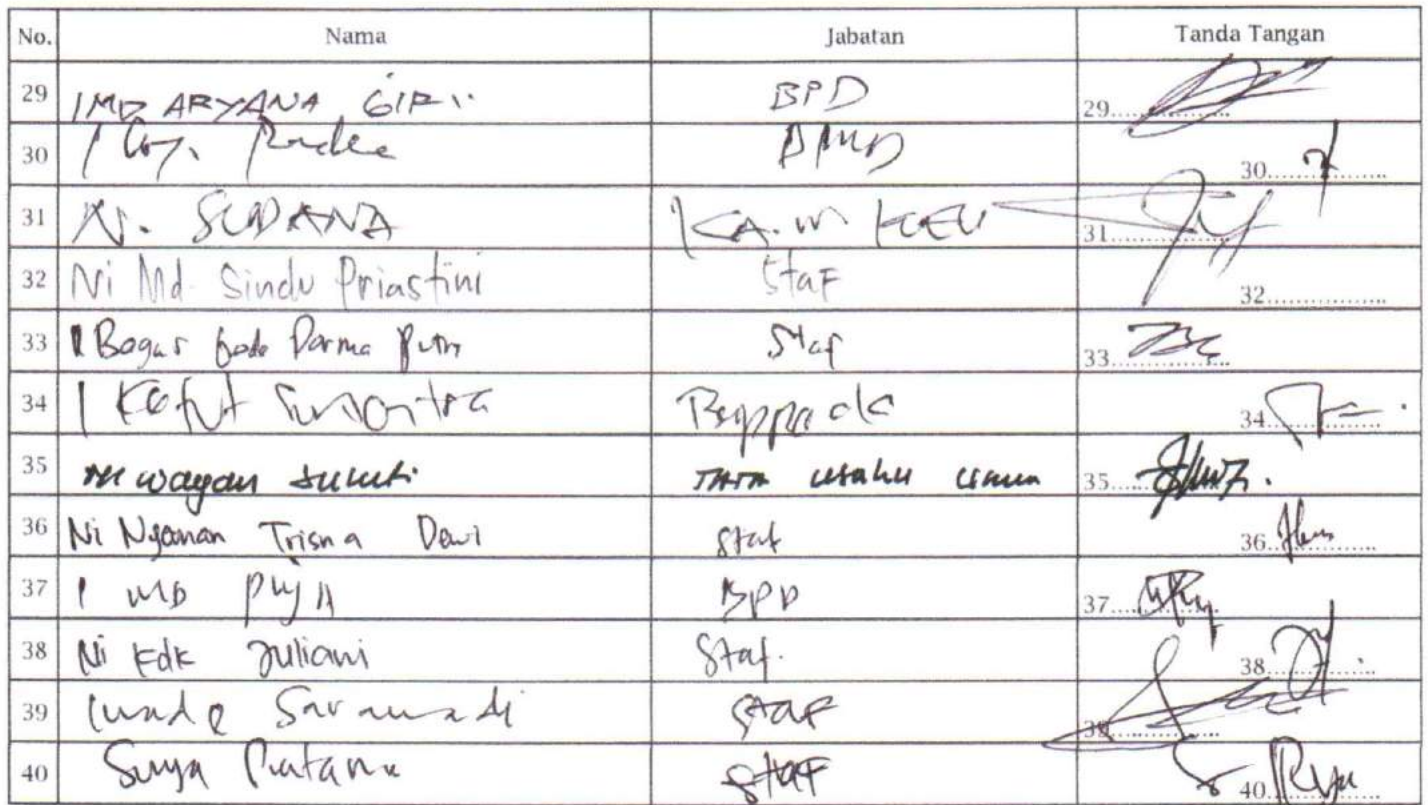 No. Nama Jabatan Tanda Tangan
29 IMD ARYANA GIRI BPD 29
30 I BPMD 30
31 N. SUDANA KA.UR KEU 31
32 Ni Md. Sindu Priastini Staf 32
33 I Bagus Gede Darma Putra Staf 33
34 I Ketut 34
35 Ni Wayan TATA USAHA UMUM 35
36 Ni Nyoman Trisna Dewi Staf 36
37 I MD PUJA BPD 37
38 Ni Kdk Juliani Staf. 38
39 I Made Staf 39
40 Surya Pratama Staf 40